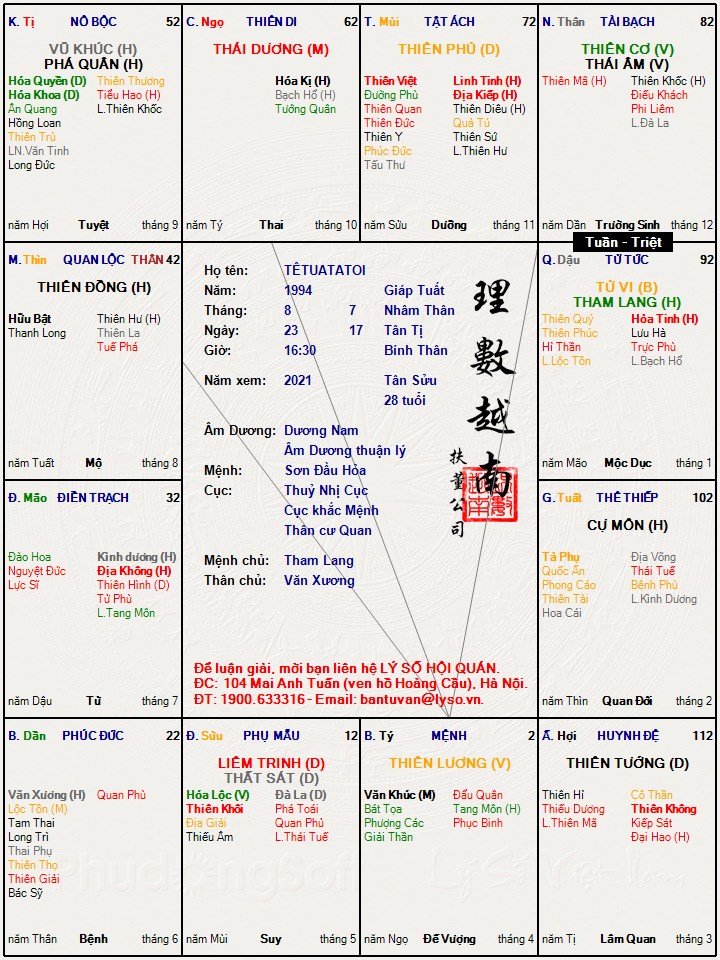 K. Tị NÔ BỘC 52
VŨ KHÚC (H)
PHÁ QUÂN (H)
Hóa Quyền (D) Thiên Thương
Hóa Khoa (D) Tiểu Hao (H)
Ân Quang L.Thiên Khốc
Hồng Loan
Thiên Trù
LN.Văn Tinh
Long Đức
năm Hợi Tuyệt tháng 9
C. Ngọ THIÊN DI 62
THÁI DƯƠNG (M)
Hóa Kị (H)
Bạch Hổ (H)
Tướng Quân
năm Tý Thai tháng 10
T. Mùi TẬT ÁCH 72
THIÊN PHỦ (D)
Thiên Việt Linh Tinh (H)
Đường Phù Địa Kiếp (H)
Thiên Quan Thiên Diêu (H)
Thiên Đức Quả Tú
Thiên Y Thiên Sứ
Phúc Đức L.Thiên Hư
Tấu Thư
năm Sửu Dưỡng tháng 11
N. Thân TÀI BẠCH 82
THIÊN CƠ (V)
THÁI ÂM (V)
Thiên Mã (H) Thiên Khốc (H)
Điếu Khách
Phi Liêm
L.Đà La
năm Dần Trường Sinh tháng 12
Tuần - Triệt
M. Thìn QUAN LỘC THÂN 42
THIÊN ĐỒNG (H)
Hữu Bật Thiên Hư (H)
Thanh Long Thiên La
Tuế Phá
năm Tuất Mộ tháng 8
Họ tên: TÊTUATATOI
Năm: 1994 Giáp Tuất
Tháng: 8 7 Nhâm Thân
Ngày: 23 17 Tân Tị
Giờ: 16:30 Bính Thân
Năm xem: 2021 Tân Sửu
28 tuổi
Âm Dương: Dương Nam
Âm Dương thuận lý
Mệnh: Sơn Đầu Hỏa
Cục: Thuỷ Nhị Cục
Cục khắc Mệnh
Thân cư Quan
Mệnh chủ: Tham Lang
Thân chủ: Văn Xương
理數越南
扶董公司
Để luận giải, mời bạn liên hệ LÝ SỐ HỘI QUÁN.
ĐC: 104 Mai Anh Tuấn (ven hồ Hoàng Cầu), Hà Nội.
ĐT: 1900.633316 - Email: bantuvan@lyso.vn.
Q. Dậu TỬ TỨC 92
TỬ VI (B)
THAM LANG (H)
Thiên Quý Hỏa Tinh (H)
Thiên Phúc Lưu Hà
Hỉ Thần Trực Phù
L.Lộc Tồn L.Bạch Hổ
năm Mão Mộc Dục tháng 1
Đ. Mão ĐIỀN TRẠCH 32
Đào Hoa Kình dương (H)
Nguyệt Đức Địa Không (H)
Lực Sĩ Thiên Hình (D)
Tử Phù
L.Tang Môn
năm Dậu Tử tháng 7
G. Tuất THÊ THIẾP 102
CỰ MÔN (H)
Tả Phụ Địa Võng
Quốc Ấn Thái Tuế
Phong Cáo Bệnh Phù
Thiên Tài L.Kình Dương
Hoa Cái
năm Thìn Quan Đới tháng 2
B. Dần PHÚC ĐỨC 22
Văn Xương (H) Quan Phù
Lộc Tồn (M)
Tam Thai
Long Trì
Thai Phụ
Thiên Thọ
Thiên Giải
Bác Sỹ
năm Thân Bệnh tháng 6
Đ. Sửu PHỤ MẪU 12
LIÊM TRINH (D)
THẤT SÁT (D)
Hóa Lộc (V) Đà La (D)
Thiên Khôi Phá Toái
Địa Giải Quan Phủ
Thiếu Âm L.Thái Tuế
năm Mùi Suy tháng 5
B. Tý MỆNH 2
THIÊN LƯƠNG (V)
Văn Khúc (M) Đẩu Quân
Bát Tọa Tang Môn (H)
Phượng Các Phục Binh
Giải Thần
năm Ngọ Đế Vượng tháng 4
Ấ. Hợi HUYNH ĐỆ 112
THIÊN TƯỚNG (D)
Thiên Hỉ Cô Thần
Thiếu Dương Thiên Không
L.Thiên Mã Kiếp Sát
Đại Hao (H)
năm Tị Lâm Quan tháng 3